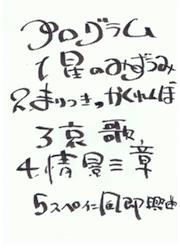 プログラム
1 星のみずうみ
2. まりつき、かくれんぼ
3 哀歌
4. 情景三章
5 スペイン風即興曲